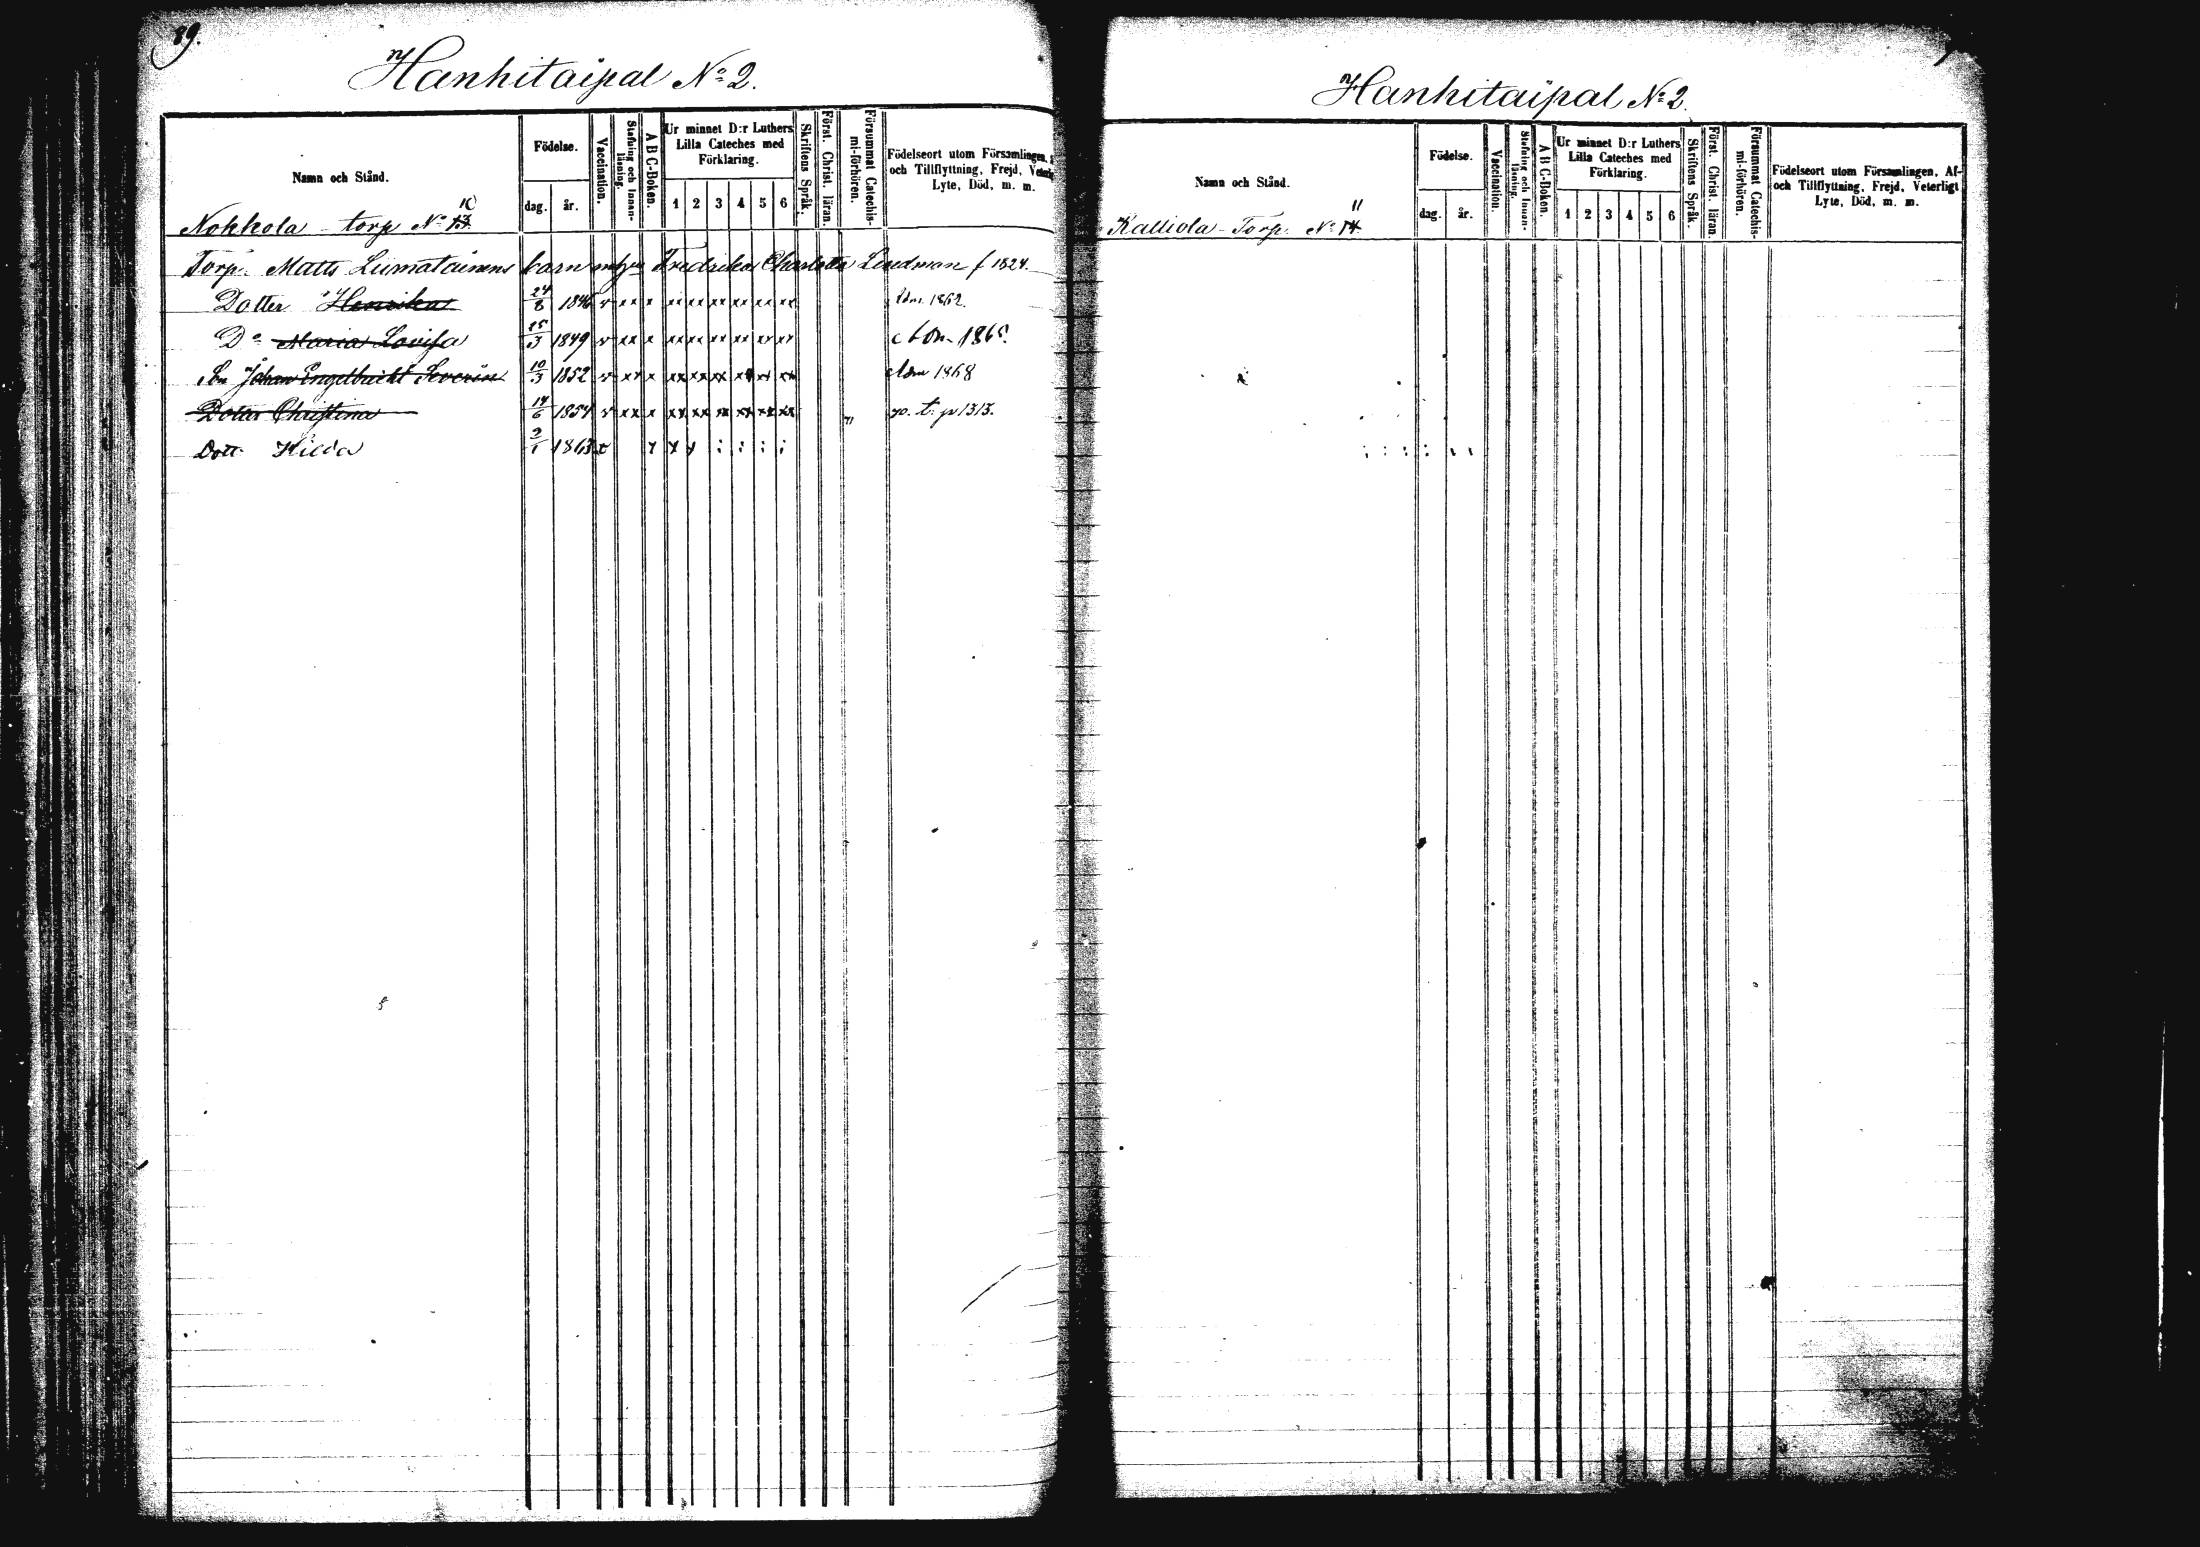 89.
Hanhitaipal No 2.
Namn och Stånd.
Födelse.
dag.
år.
Vaccination.
Stafning och Innan-läsning.
A B C-Boken.
Ur minnet D:r Luthers
Lilla Cateches med
Förklaring.
1 2 3 4 5 6
Skriftens Språk.
Först. Christ. läran.
Försummat Catechis-
mi-förhören.
Födelseort utom Församlingen,
och Tillflyttning, Frejd,
Lyte, Död, m. m.
Nokkola - torp No 13 10
Torp. Matts Liimatainens barn Fredrika Charlotta Lindman f 1824.
Dotter Henrika 24/8 1846 v xx x xx xx xx xx xx xx 1862.
Do Maria Lovisa 25/3 1849 v xx x xx xx xx xx xx xx
Johan Engelbrecht Severin 10/3 1852 v xx x xx xx xx xx xx xx 1868
Dotter Christina 14/6 1854 v xx x xx xx xx xx xx xx p 1313.
Dott. Hilda 2/1 1863
Hanhitaipal No 2
Namn och Stånd.
Födelse.
dag.
år.
Vaccination.
Stafning och Innan-läsning.
A B C-Boken.
Ur minnet D:r Luthers
Lilla Cateches med
Förklaring.
1 2 3 4 5 6
Skriftens Språk.
Först. Christ. läran.
Försummat Catechis-
mi-förhören.
Födelseort utom Församlingen, Af-
och Tillflyttning, Frejd, Veterligt
Lyte, Död, m. m.
Kalliola - Torp. No 14 11